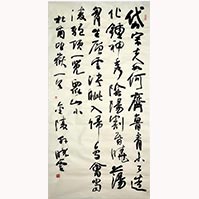 岱宗夫如何齊魯青未了造
化鍾神秀陰陽割昏曉蕩
胸生層雲決眦入歸鳥會當
凌絕頂一覽眾山小
杜甫望嶽一首 金陵曉雲